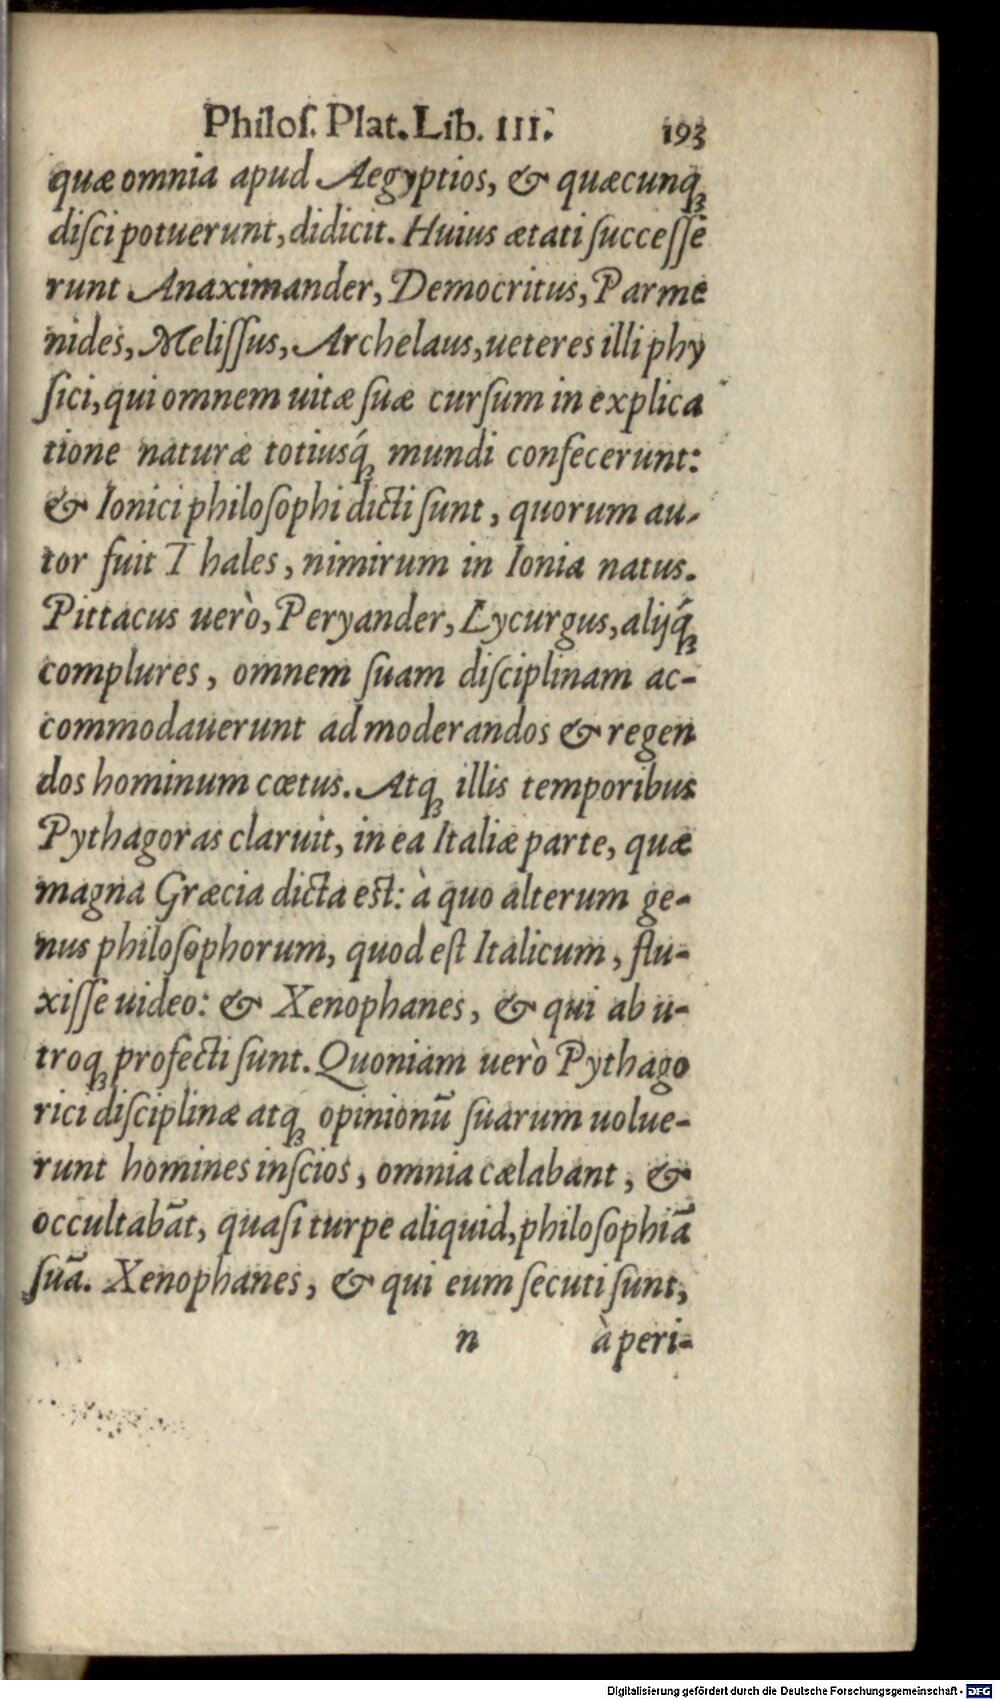 Philoſ. Plat. Lib. III. 193
quæ omnia apud Aegyptios, & quæcunqꝫ
diſci potuerunt, didicit. Huius ætati ſucceſſe
runt Anaximander, Democritus, Parme
nides, Meliſſus, Archelaus, ueteres illi phy
ſici, qui omnem uitæ ſuæ curſum in explica
tione naturæ totiusq́ꝫ mundi confecerunt:
& Ionici philoſophi dicti ſunt, quorum au-
tor fuit Thales, nimirum in Ionia natus.
Pittacus uerò, Peryander, Lycurgus, alijq́ꝫ
complures, omnem ſuam diſciplinam ac-
commodauerunt ad moderandos & regen
dos hominum cœtus. Atqꝫ illis temporibus
Pythagoras claruit, in ea Italiæ parte, quæ
magna Græcia dicta est: à quo alterum ge-
nus philoſophorum, quod eſt Italicum, flu-
xiſſe uideo: & Xenophanes, & qui ab u-
troqꝫ profecti ſunt. Quoniam uerò Pythago
rici diſciplinæ atqꝫ opinionū ſuarum uolue-
runt homines inſcios, omnia cælabant, &
occultabāt, quaſi turpe aliquid, philoſophiā
ſuā. Xenophanes, & qui eum ſecuti ſunt,
n à peri-
Digitalisierung gefördert durch die Deutsche Forschungsgemeinschaft - DFG